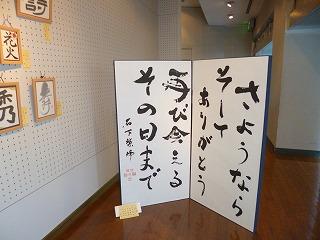 さようなら
そして
ありがとう
再び会える
その日まで
花火